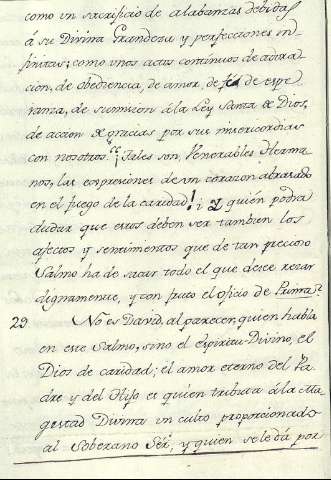 como un sacrificio de alabanzas debidas
á su Divina Grandeza y perfecciones in-
finitas; como unos actos continuos de adora-
cion, de obediencia, de amor, de fe, de espe-
ranza, de sumision á la Ley Santa de Dios,
de accion de gracias por sus misericordias
con nosotros. ¡Tales son, Venerables Herma-
nos, las expresiones de un corazon abrasado
en el fuego de la caridad! ¿Y quién podrá
dudar que estos deben ser tambien los
afectos y sentimientos que de tan precioso
Salmo ha de sacar todo el que desee rezar
dignamente, y con fruto el Oficio de Prima?
29 No es David, al parecer, quien habla
en este Salmo, sino el espiritu Divino, el
Dios de caridad; el amor eterno del Pa-
dre y del Hijo es quien tributa á la Ma-
gestad Divina un culto proporcionado
al Soberano Sér, y quien se le dá por